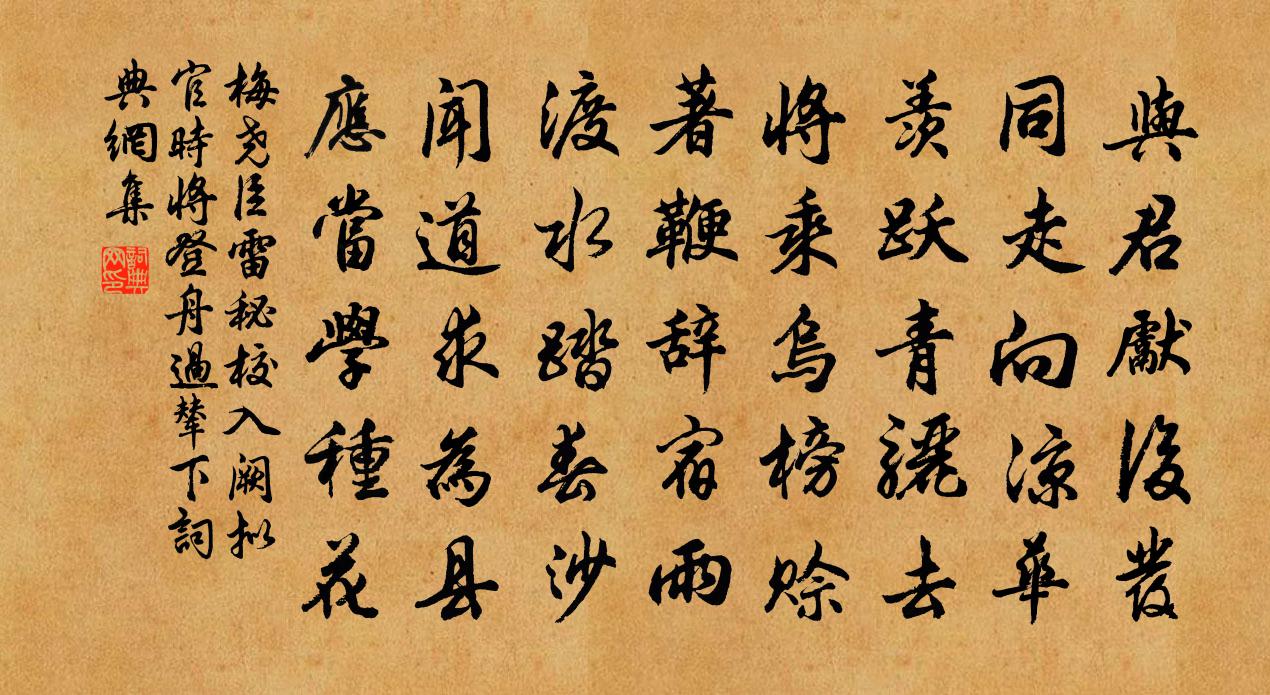 與君獻後發
同走向凉華
羨跃青驪去
將乘烏榜賒
著鞭辞宿雨
渡水踏春沙
聞道求為县
應當學種花
梅尧臣雷秘校入阙拟
官時將登舟過輦下詞
典網集
詞典网印